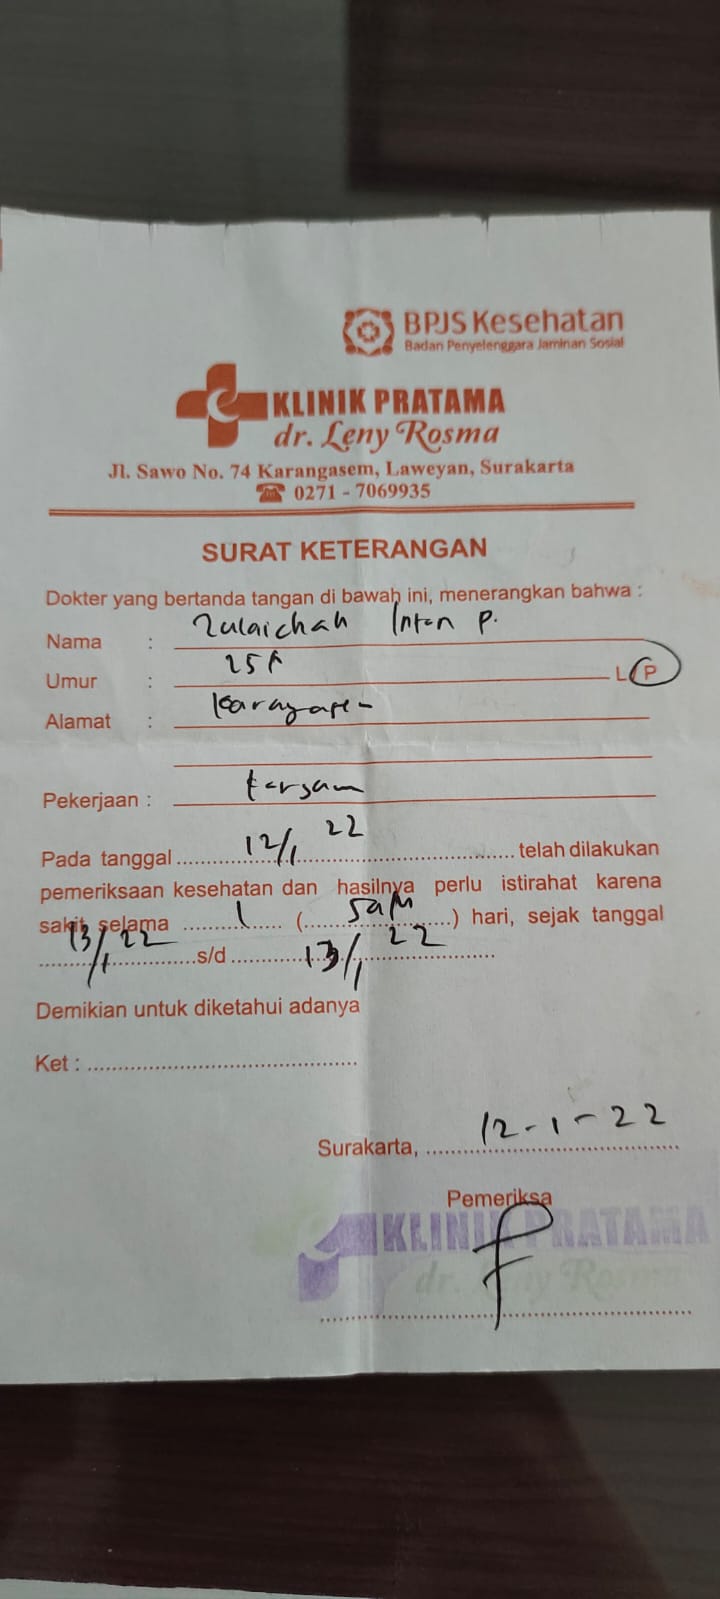 BPJS Kesehatan
Badan Penyelenggara Jaminan Sosial
KLINIK PRATAMA
dr. Leny Rosma
Jl. Sawo No. 74 Karangasem, Laweyan, Surakarta
☎ 0271 - 7069935
SURAT KETERANGAN
Dokter yang bertanda tangan di bawah ini, menerangkan bahwa :
Nama : Zulaichah Intan P.
Umur : 25 L/P
Alamat :
Pekerjaan :
Pada tanggal 12/1 22 telah dilakukan
pemeriksaan kesehatan dan hasilnya perlu istirahat karena
sakit selama 1 (satu) hari, sejak tanggal
13/1 22 s/d 13/1 22
Demikian untuk diketahui adanya
Ket :
Surakarta, 12-1-22
Pemeriksa
KLINIK PRATAMA
dr. Leny Rosma